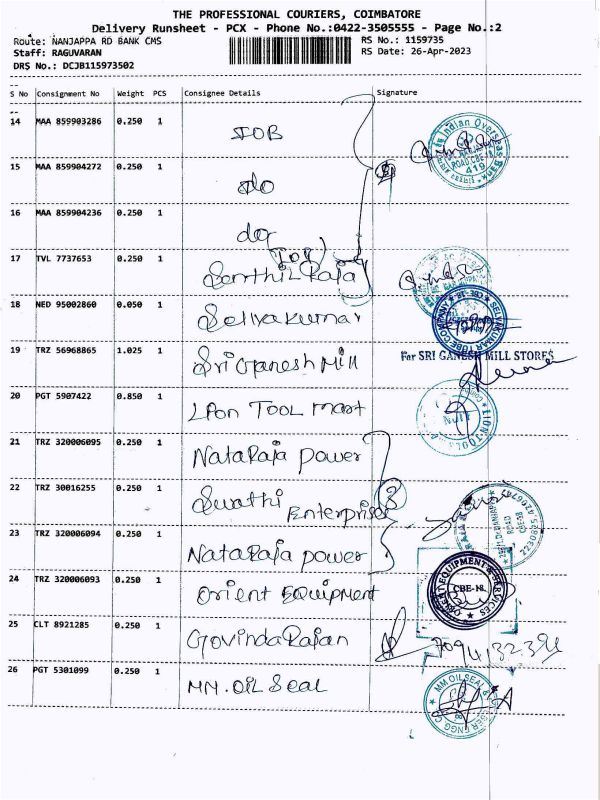 THE PROFESSIONAL COURIERS, COIMBATORE
Delivery Runsheet - PCX - Phone No.:0422-3505555 - Page No.:2
Route: NANJAPPA RD BANK CMS
RS No.: 1159735
Staff: RAGUVARAN
RS Date: 26-Apr-2023
DRS No.: DCJB115973502
S No Consignment No Weight PCS Consignee Details Signature
14 MAA 859903286 0.250 1 IOB
15 MAA 859904272 0.250 1 do
16 MAA 859904236 0.250 1 do
(IOB)
17 TVL 7737653 0.250 1 Senthil Raja
18 NED 95002860 0.050 1 Selvakumar
19 TRZ 56968865 1.025 1 Sri Ganesh Mill
For SRI GANESH MILL STORES
20 PGT 5907422 0.850 1 Lion Tool mart
21 TRZ 320006095 0.250 1 Nataraja power
22 TRZ 30016255 0.250 1 Swathi Enterprises
23 TRZ 320006094 0.250 1 Nataraja power
24 TRZ 320006093 0.250 1 Orient Equipment
CBE-18.
25 CLT 8921285 0.250 1 Govinda Rajan
26 PGT 5301099 0.250 1 MM. Oil Seal